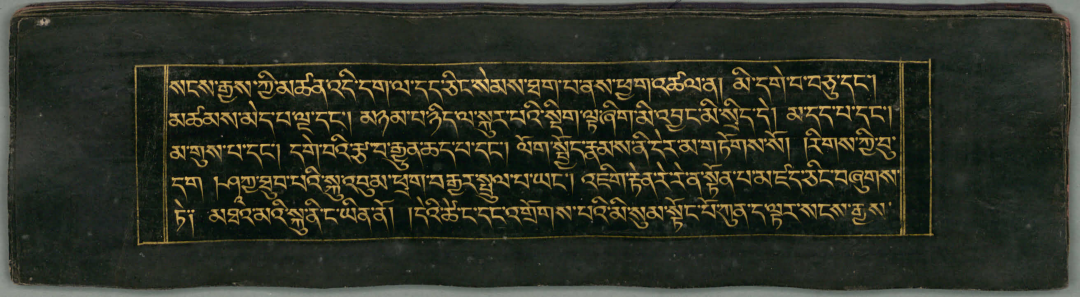 སངས་རྒྱས་ཀྱི་མཚན་འདི་དག་ལ་དང་ཅིང་སེམས་ཐག་པ་ནས་ཕྱག་འཚལ་ན། མི་དགེ་བ་བཅུ་དང་།
མཚམས་མེད་པ་ལྔ་དང་། མཉམ་པ་ཉིད་ལ་སྐུར་པའི་སྡིག་ལྟ་ཞིག་མི་འབྱང་མི་སྲིད་དེ། མ་དད་པ་དང་།
མ་གུས་པ་དང་། དགེ་བའི་རྩ་བ་རྒྱུན་ཆད་པ་དང་། ལོག་སྤྱོད་རྣམས་ནི་དེར་མ་གཏོགས་སོ། །རིགས་ཀྱི་བུ་
དག །ཤཱཀྱ་ཐུབ་པའི་སྐུ་འབུམ་ཕྲག་བརྒྱར་སྤྲུལ་པ་ཡང་། འཇིག་རྟེན་རེ་རེ་ན་སྟོན་པ་མཛད་ཅིང་བཞུགས་
ཏེ། མཐའ་མའི་སྐུ་ནི་ང་ཡིན་ནོ། །དེའི་ཚེ་ང་དང་འགྲོགས་པའི་མི་སུམ་སྟོང་པོ་ཀུན་ད་ལྟར་སངས་རྒྱས་